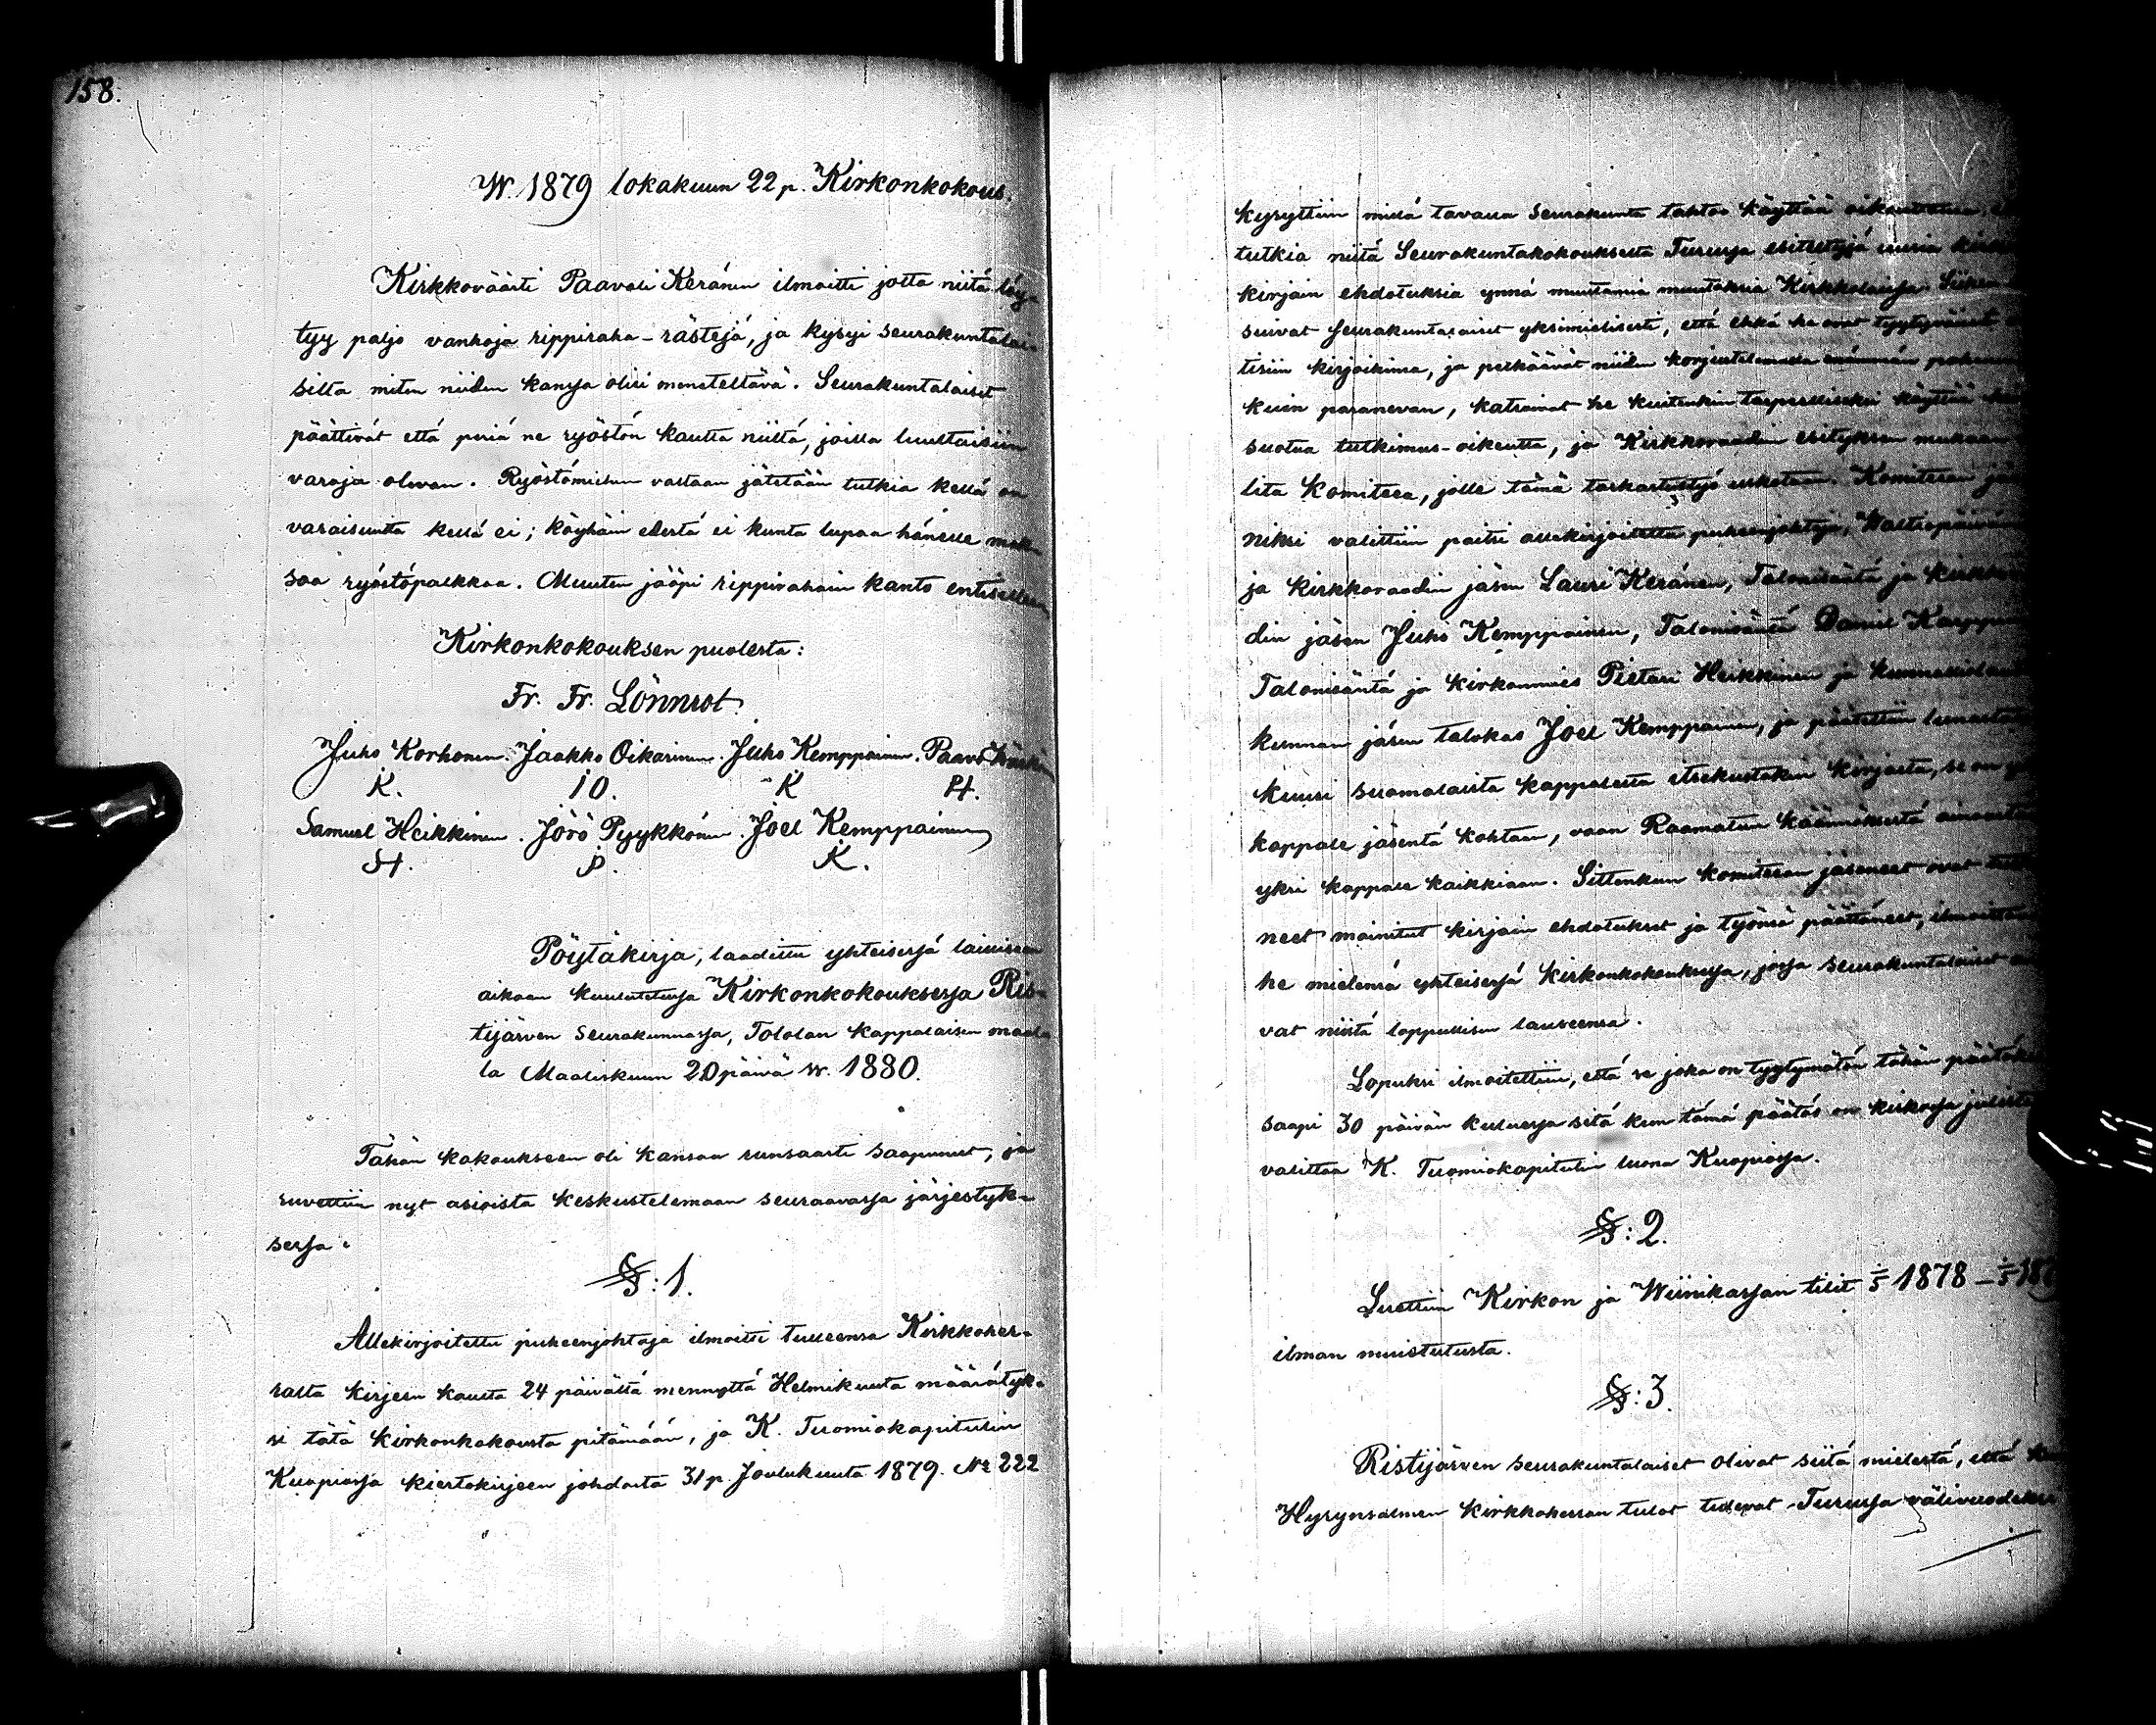 158.
W. 1879 lokakuun 22 p. Kirkonkokous.
Kirkkoväärti Paavali Keränen ilmoitti jotta niitä löy-
tyy paljo vanhoja rippiraha-rästejä, ja kysyi seurakuntalai-
silta miten niiden kanssa olisi meneteltävä. Seurakuntalaiset
päättivät että periä ne ryöstön kautta niiltä, joilla luultaisiin
varoja olevan. Ryöstömiehen valtaan jätetään tutkia kellä on
varaisuutta kellä ei; köyhäin edestä ei kunta lupaa hänelle mak-
saa ryöstöpalkkaa. Muuten jääpi rippirahain kanto entiselleen
Kirkonkokouksen puolesta:
Fr. Fr. Lönnrot.
Juho Korhonen. Jaakko Oikarinen. Juho Kemppainen. Paavo
K. IO. K H.
Samuel Heikkinen. Jörö Pyykkönen. Joel Kemppainen
H. P. K.
Pöytäkirja, laadittu yhteisessä lailliseen
aikaan kuulutetussa Kirkonkokouksessa Ris-
tijärven seurakunnassa, Tololan kappalaisen maalla
la Maaliskuun 20 päivä w. 1880.
Tähän kokoukseen oli kansaa runsaasti saapunut, ja
ruvettiin nyt asioista keskustelemaan seuraavassa järjestyk-
sessä:
§: 1.
Allekirjoitettu puheenjohtaja ilmoitti tulleensa Kirkkoher-
ralta kirjeen kautta 24 päivältä mennyttä Helmikuuta määrätyk-
si tätä kirkonkokousta pitämään, ja K. Tuomiokapitulin
Kuopiossa kiertokirjeen johdosta 31 p. Joulukuuta 1879. No 222
kysyttiin millä tavalla seurakunta tahtoo käyttää oikeuttansa
tutkia niitä Seurakuntakokouksesta Turussa esitettyjä uusia
kirjain ehdotuksia ynnä muutamia muutoksia Kirkkolaissa. Siihen
suivat seurakuntalaiset yksimielisesti, että ehkä he ovat tyytyväiset
tisiin kirjoihinsa, ja pelkäävät niiden korjuutelemalla enemmän
kuin paranevan, katsoivat he kuitenkin tarpeelliseksi käyttää
suotua tutkimus-oikeutta, ja Kirkkoraadin esityksen mukaan
lita Komitea, jolle tämä tarkastustyö uskotaan. Komitean
niksi valittiin paitsi allekirjoitettu puheenjohtaja,
ja kirkkoraadin jäsen Lauri Keränen, Talonisäntä ja
din jäsen Juho Kemppainen, Talonisäntä Daniel
Talonisäntä ja kirkonmies Pietari Heikkinen ja
kunnan jäsen talokas Joel Kemppainen, ja päätettiin
kuusi suomalaista kappaletta itsekustakin kirjasta, se on
kappale jäsentä kohtaan, vaan Raamatun käännöksestä ainoastaan
yksi kappale kaikkiaan. Sittenkun komitean jäsenet ovat
neet mainitut kirjain ehdotukset ja työnsä päättäneet, ilmoittavat
he mielensä yhteisessä kirkonkokouksessa, jossa seurakuntalaiset
vat niistä lopullisen lauseensa.
Lopuksi ilmoitettiin, että se joka on tyytymätön tähän
saapi 30 päivän kuluessa sitä kun tämä päätös on kirkossa
valittaa K. Tuomiokapitulin luona Kuopiossa.
§: 2.
Luettiin Kirkon ja Wiinikassan tilit 1/5 1878 – 1/5
ilman muistutusta.
§: 3.
Ristijärven seurakuntalaiset olivat siitä mielestä, että
Hyrynsalmen kirkkoherran tulot tulevat Turussa välivuodeksi